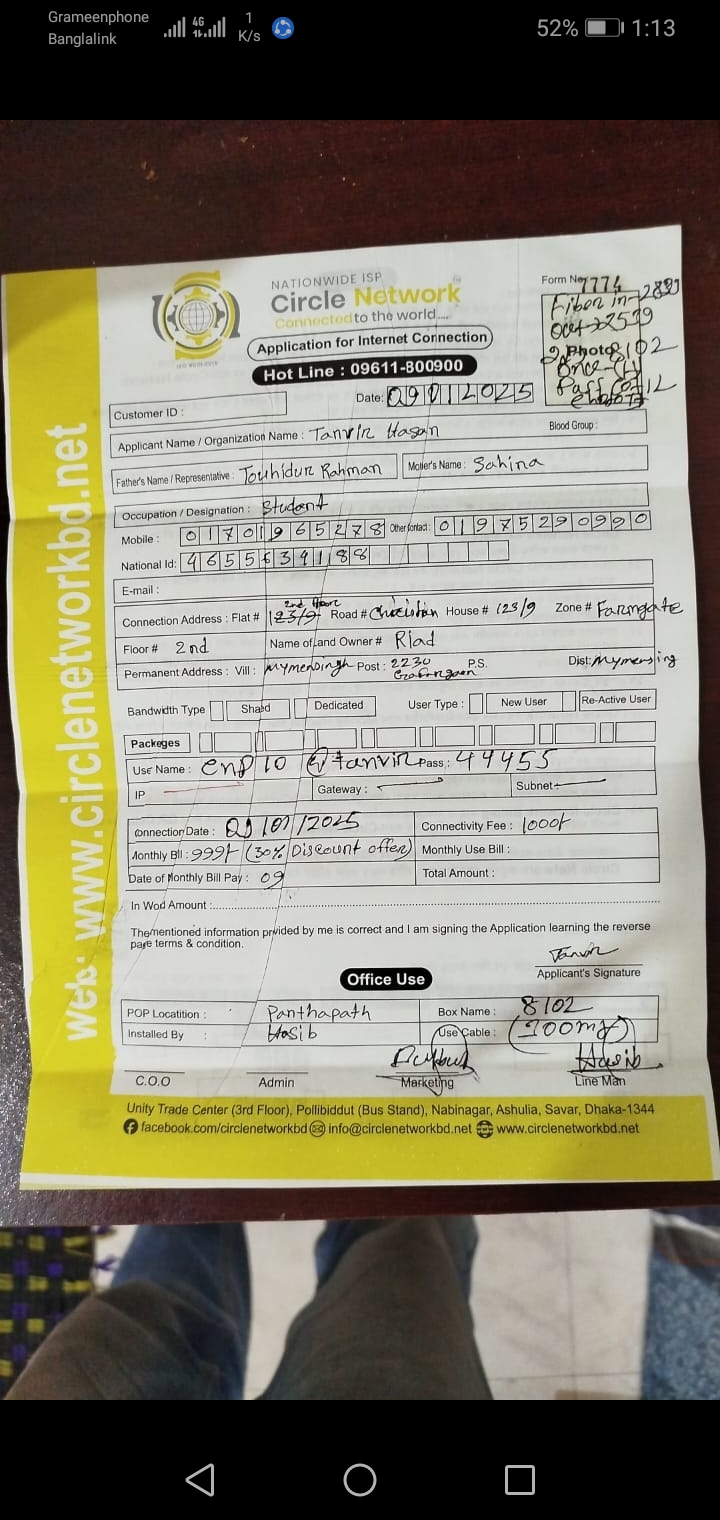 Grameenphone
Banglalink
4G
1
K/s
52% 1:13
NATIONWIDE ISP
Circle Network
Connected to the world....
Application for Internet Connection
Hot Line : 09611-800900
Form No 7774
Fiber in-
Out
Photo 8102
Date: 09012025
Customer ID :
Applicant Name / Organization Name : Tanvir Hasan Blood Group :
Father's Name / Representative : Touhidur Rahman Moter's Name : Sahina
Occupation / Designation : Student
Mobile : 01701965278 Other Contact : 01975290990
National Id: 4655639188
E-mail :
2nd floor
Connection Address : Flat # 123/9 Road # Christian House # 123/9 Zone # Farmgate
Floor # 2nd Name of Land Owner # Riad
Permanent Address : Vill : Mymensingh Post : 2230 P.S. Dist: Mymensing
Bandwidth Type Shaed Dedicated User Type : New User Re-Active User
Packeges
Use Name : enp 10 @tanvir Pass : 44455
IP Gateway : Subnet
Connection Date : 09/01/2025 Connectivity Fee : 1000/-
Monthly Bll : 999/- (30% Discount offer) Monthly Use Bill :
Date of Monthly Bill Pay : 09 Total Amount :
In Wod Amount :
The mentioned information prvided by me is correct and I am signing the Application learning the reverse
page terms & condition.
Tanvir
Applicant's Signature
Office Use
POP Locatition : Panthapath Box Name : 8102
Installed By : Hasib Use Cable : (100m)
Hasib
C.O.O Admin Marketing Line Man
Unity Trade Center (3rd Floor), Pollibiddut (Bus Stand), Nabinagar, Ashulia, Savar, Dhaka-1344
facebook.com/circlenetworkbd info@circlenetworkbd.net www.circlenetworkbd.net
Web: www.circlenetworkbd.net